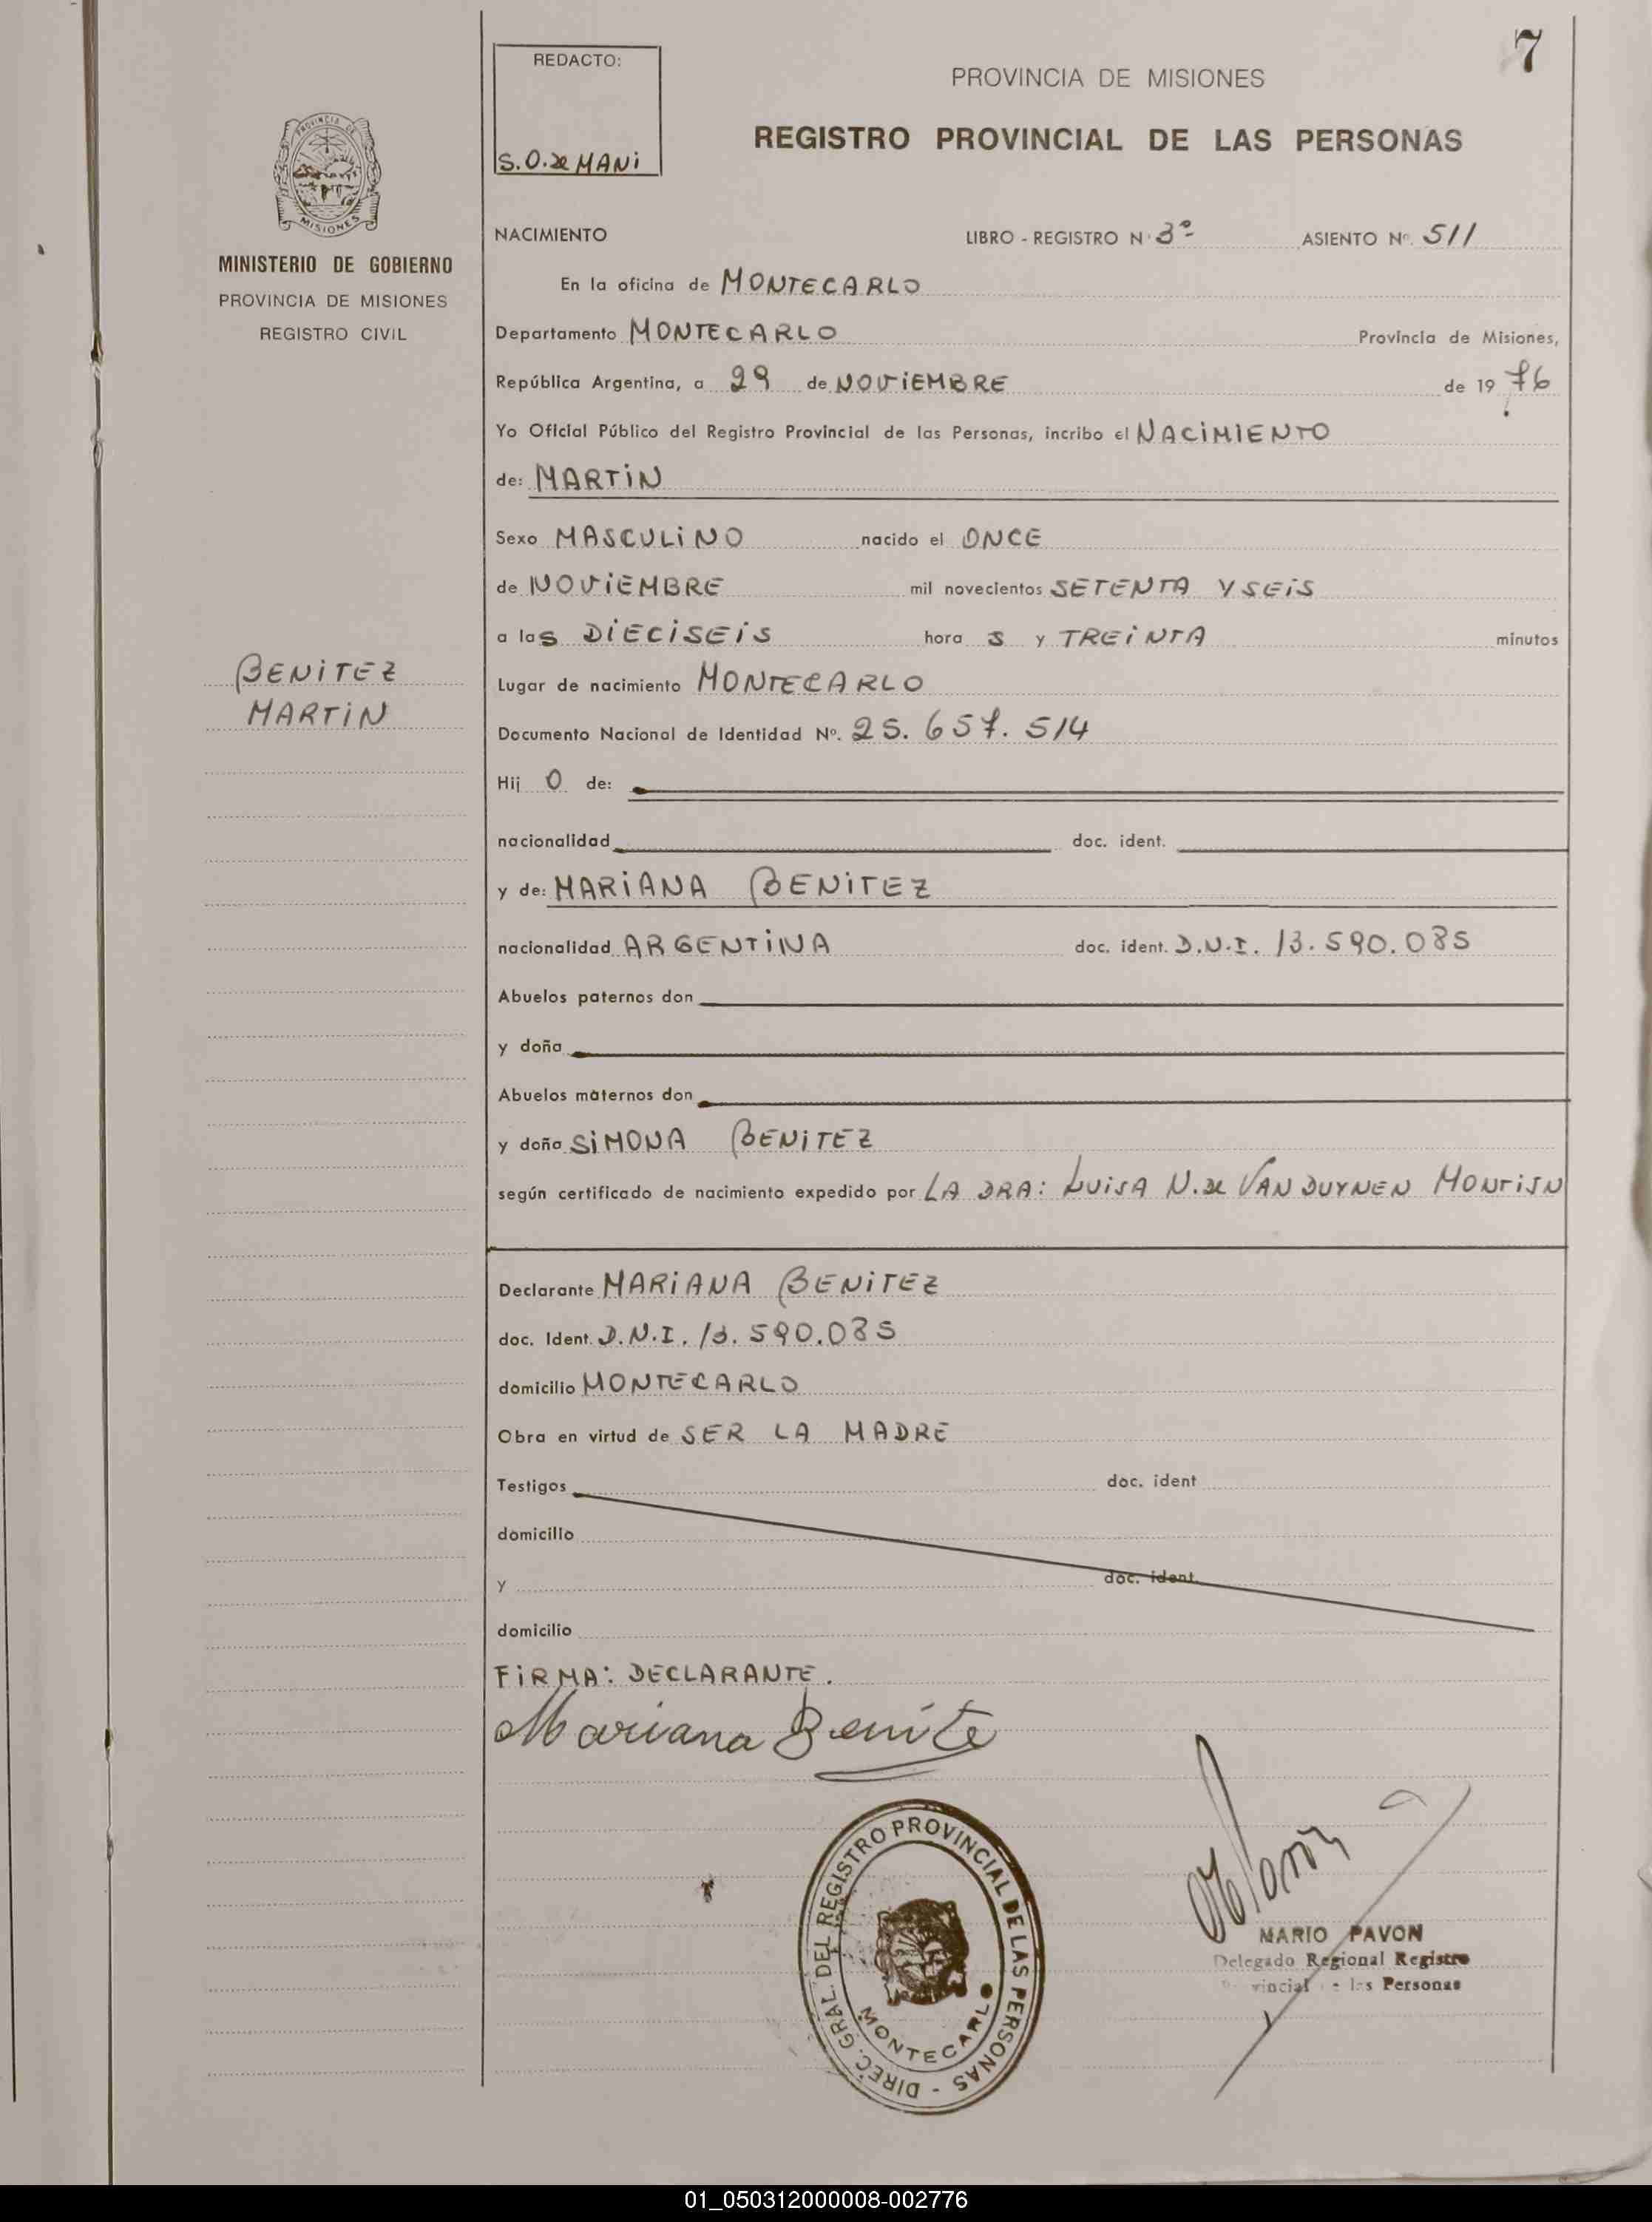 7
REDACTO:
S.O. de MANi
PROVINCIA DE MISIONES
REGISTRO PROVINCIAL DE LAS PERSONAS
PROVINCIA DE
MISIONES
MINISTERIO DE GOBIERNO
PROVINCIA DE MISIONES
REGISTRO CIVIL
NACIMIENTO LIBRO - REGISTRO Nº 3º ASIENTO Nº 511
En la oficina de MONTECARLO
Departamento MONTECARLO Provincia de Misiones,
República Argentina, a 29 de NOViEMBRE de 1976
Yo Oficial Público del Registro Provincial de las Personas, incribo el NACiMIENTO
de: MARTiN
Sexo MASCULiNO nacido el ONCE
de NOViEMBRE mil novecientos SETENTA Y SEiS
a las DiECiSEiS hora s y TREiNTA minutos
BENiTEZ
MARTiN
Lugar de nacimiento MONTECARLO
Documento Nacional de Identidad Nº. 25.657.514
Hij O de:
nacionalidad doc. ident.
y de: MARiANA BENiTEZ
nacionalidad ARGENTiNA doc. ident. D.N.I. 13.590.085
Abuelos paternos don
y doña
Abuelos maternos don
y doña SiMONA BENiTEZ
según certificado de nacimiento expedido por LA DRA: LUiSA N. de VAN DUYNEN MONTiJN
Declarante MARiANA BENiTEZ
doc. Ident. D.N.I. 13.590.085
domicilio MONTECARLO
Obra en virtud de SER LA MADRE
Testigos doc. ident
domicilio
y doc. ident.
domicilio
FiRMA: DECLARANTE.
Mariana Benite
DIREC. GRAL. DEL REGISTRO PROVINCIAL DE LAS PERSONAS -
MONTECARLO
MARIO PAVON
Delegado Regional Registro
las Personas
01_050312000008-002776